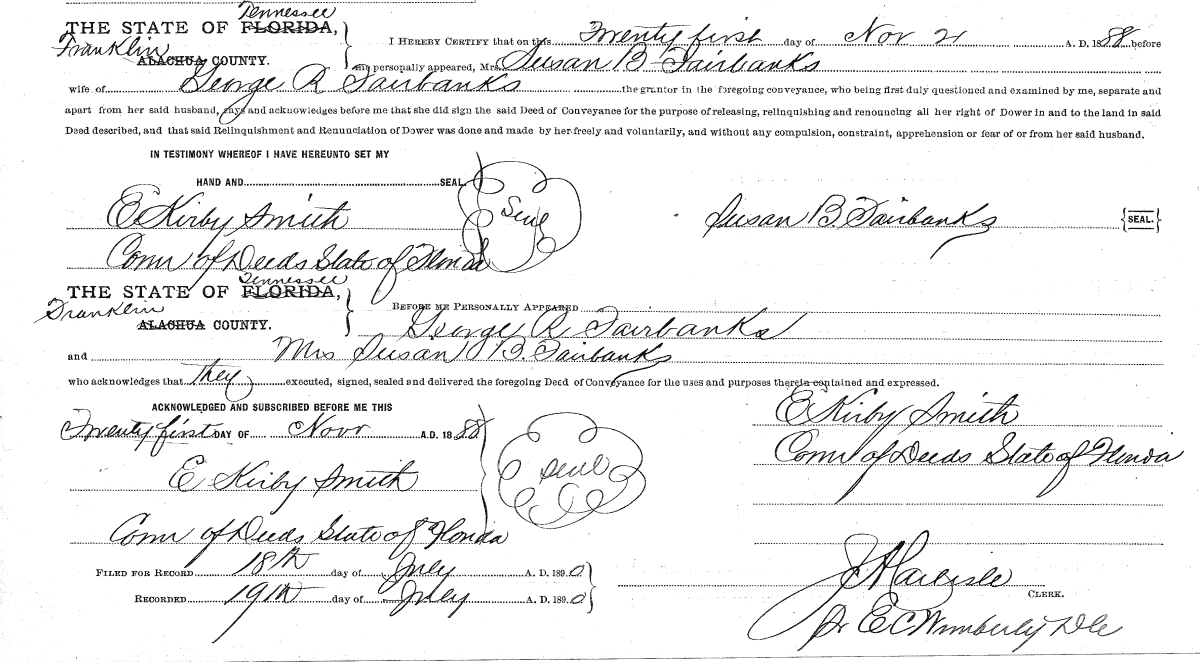 Tennessee
THE STATE OF FLORIDA,
Franklin
ALACHUA COUNTY.
I HEREBY CERTIFY that on this Twenty first day of Nov 21 A. D. 1888 before
me personally appeared, Mrs. Susan B Fairbanks
wife of George R Fairbanks the grantor in the foregoing conveyance, who being first duly questioned and examined by me, separate and
apart from her said husband, says and acknowledges before me that she did sign the said Deed of Conveyance for the purpose of releasing, relinquishing and renouncing all her right of Dower in and to the land in said
Deed described, and that said Relinquishment and Renunciation of Dower was done and made by her freely and voluntarily, and without any compulsion, constraint, apprehension or fear of or from her said husband.
IN TESTIMONY WHEREOF I HAVE HEREUNTO SET MY
HAND AND SEAL.
Seal
E Kirby Smith
Susan B. Fairbanks {SEAL.}
Comr of Deeds State of Florida
Tennessee
THE STATE OF FLORIDA,
Franklin
ALACHUA COUNTY.
BEFORE ME PERSONALLY APPEARED
George R Fairbanks
and Mrs Susan B. Fairbanks
who acknowledges that they executed, signed, sealed and delivered the foregoing Deed of Conveyance for the uses and purposes therein contained and expressed.
ACKNOWLEDGED AND SUBSCRIBED BEFORE ME THIS
Twenty first DAY OF Novr A.D. 1888
Seal
E Kirby Smith
Comr of Deeds State of Florida
E Kirby Smith
Comr of Deeds State of Florida
FILED FOR RECORD 18th day of July A. D. 1890
RECORDED 19th day of July A. D. 1890
J A Carlisle
CLERK.
Pr E C Wimberly D C